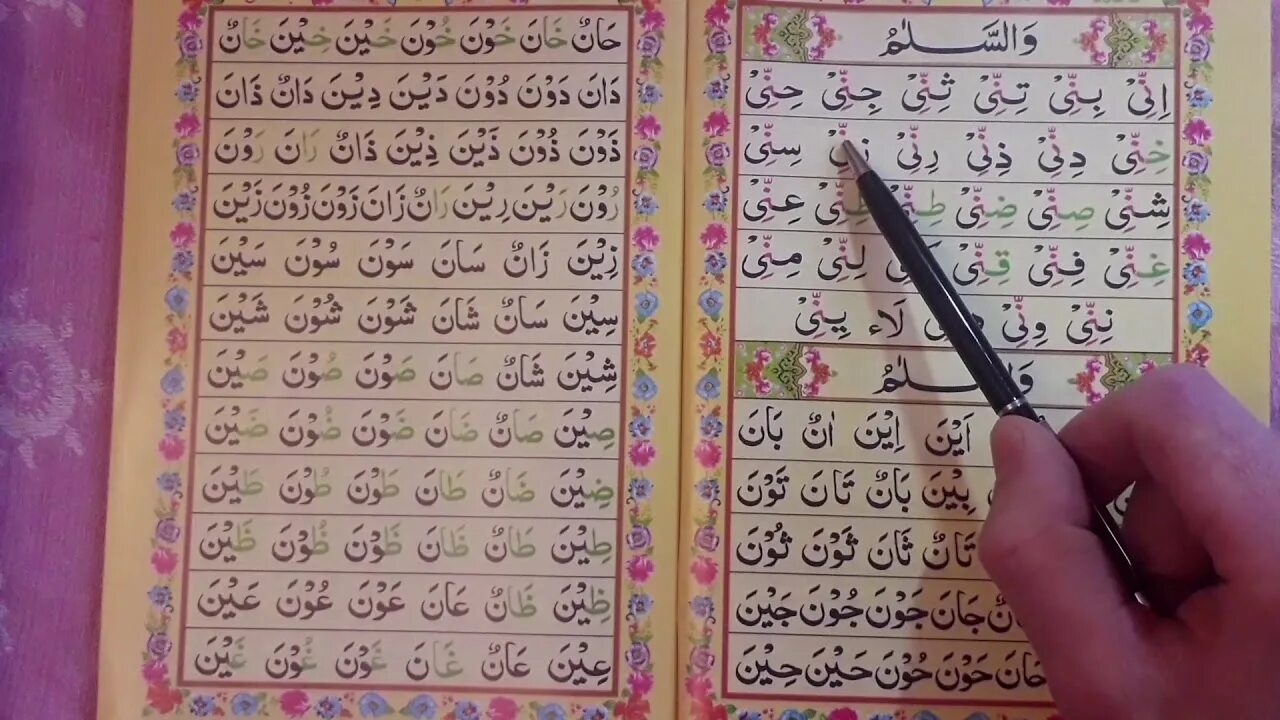 وَالسَّلٰمُ
اِنِّىْ بِنِّىْ تِنِّىْ ثِنِّىْ جِنِّىْ حِنِّىْ
خِنِّىْ دِنِّىْ ذِنِّىْ رِنِّىْ سِنِّىْ
شِنِّىْ صِنِّىْ ضِنِّىْ طِنِّىْ ظِنِّىْ عِنِّىْ
غِنِّىْ فِنِّىْ قِنِّىْ لِنِّىْ مِنِّىْ
نِنِّىْ وِنِّىْ لَاء يِنِّىْ
وَالسَّلٰمُ
اَيْنَ اِيْنَ اٰنٌ بَانَ
بِيْنَ بَانٌ تَانَ تَوْنَ
تَانٌ ثَانَ ثَوْنَ ثُوْنَ
جَانَ جَوْنَ جُوْنَ جَيْنَ
حَانَ حَوْنَ حُوْنَ حَيْنَ حِيْنَ
حَانٌ خَانَ خَوْنَ خُوْنَ خَيْنَ خِيْنَ خَانٌ
دَانَ دَوْنَ دُوْنَ دَيْنَ دِيْنَ دَانٌ ذَانَ
ذَوْنَ ذُوْنَ ذَيْنَ ذِيْنَ ذَانٌ رَانَ رَوْنَ
رُوْنَ رَيْنَ رِيْنَ رَانٌ زَانَ زَوْنَ زُوْنَ زَيْنَ
زِيْنَ زَانٌ سَانَ سَوْنَ سُوْنَ سَيْنَ
سِيْنَ سَانٌ شَانَ شَوْنَ شُوْنَ شَيْنَ
شِيْنَ شَانٌ صَانَ صَوْنَ صُوْنَ صَيْنَ
صِيْنَ صَانٌ ضَانَ ضَوْنَ ضُوْنَ ضَيْنَ
ضِيْنَ ضَانٌ طَانَ طَوْنَ طُوْنَ طَيْنَ
طِيْنَ طَانٌ ظَانَ ظَوْنَ ظُوْنَ ظَيْنَ
ظِيْنَ ظَانٌ عَانَ عَوْنَ عُوْنَ عَيْنَ
عِيْنَ عَانٌ غَانَ غَوْنَ غُوْنَ غَيْنَ